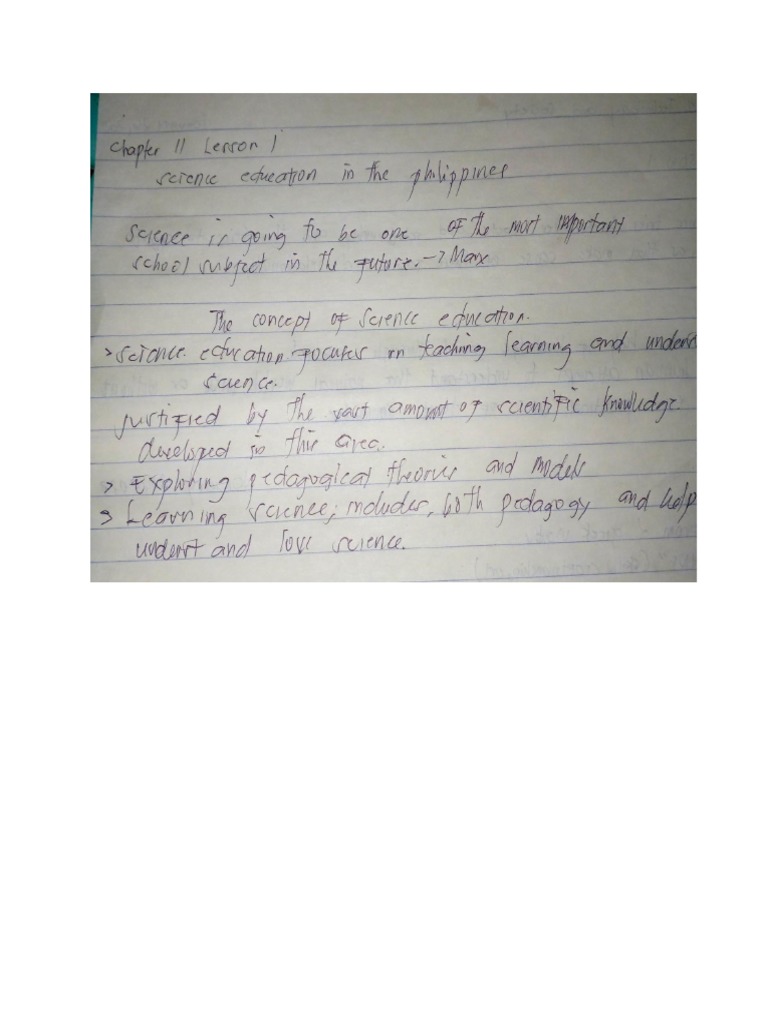 Chapter 11 Lesson 1
science education in the philippines
Science is going to be one of the most important
school subject in the future. -> Marx
The concept of science education.
> science education focuses on teaching learning and underst
science.
justified by the vast amount of scientific knowledge
developed in this area.
> Exploring pedagogical theories and models
> Learning science; includes, both pedagogy and help
underst and love science.